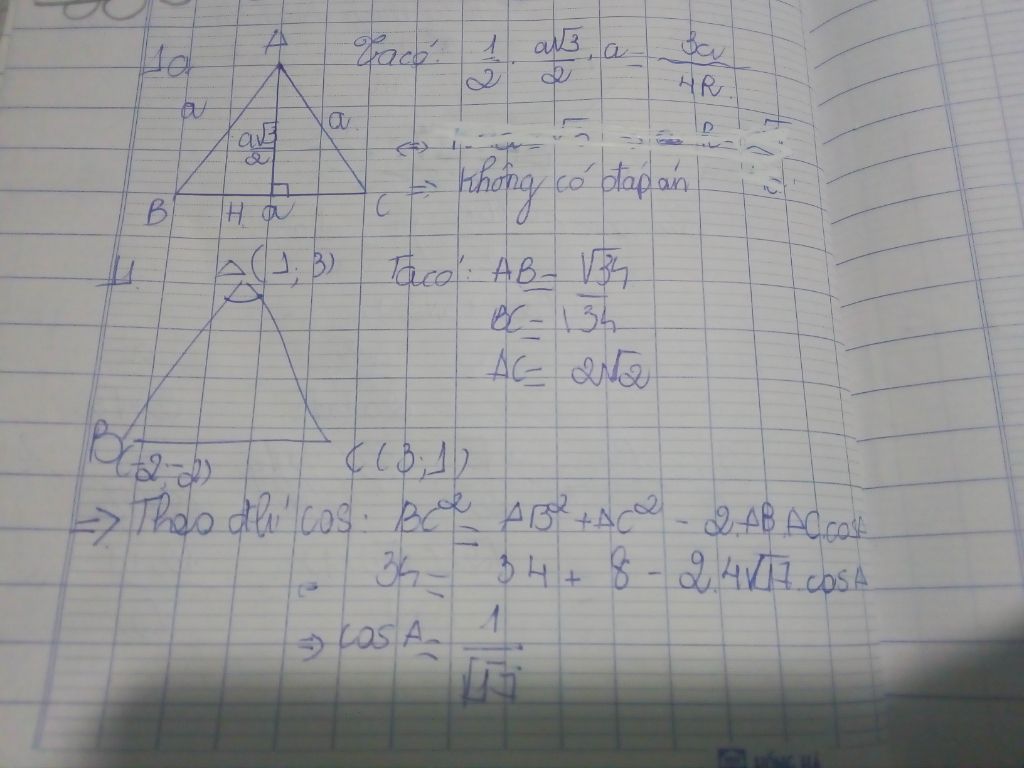 10
A
Ta có: 1/2 . a√3/2 . a = 3a/4R
a
a
a√3/2
⇔
B
H
a
C
⇒ Không có đáp án
11
A (1; 3)
Ta có: AB = √34
BC = √34
AC = 2√2
B (-2; -2)
C (3; 1)
⇒ Theo đlí cos: BC² = AB² + AC² - 2.AB.AC.cosA
34 = 34 + 8 - 2.4√17.cosA
⇒ cosA = 1/√17
HỒNG HÀ